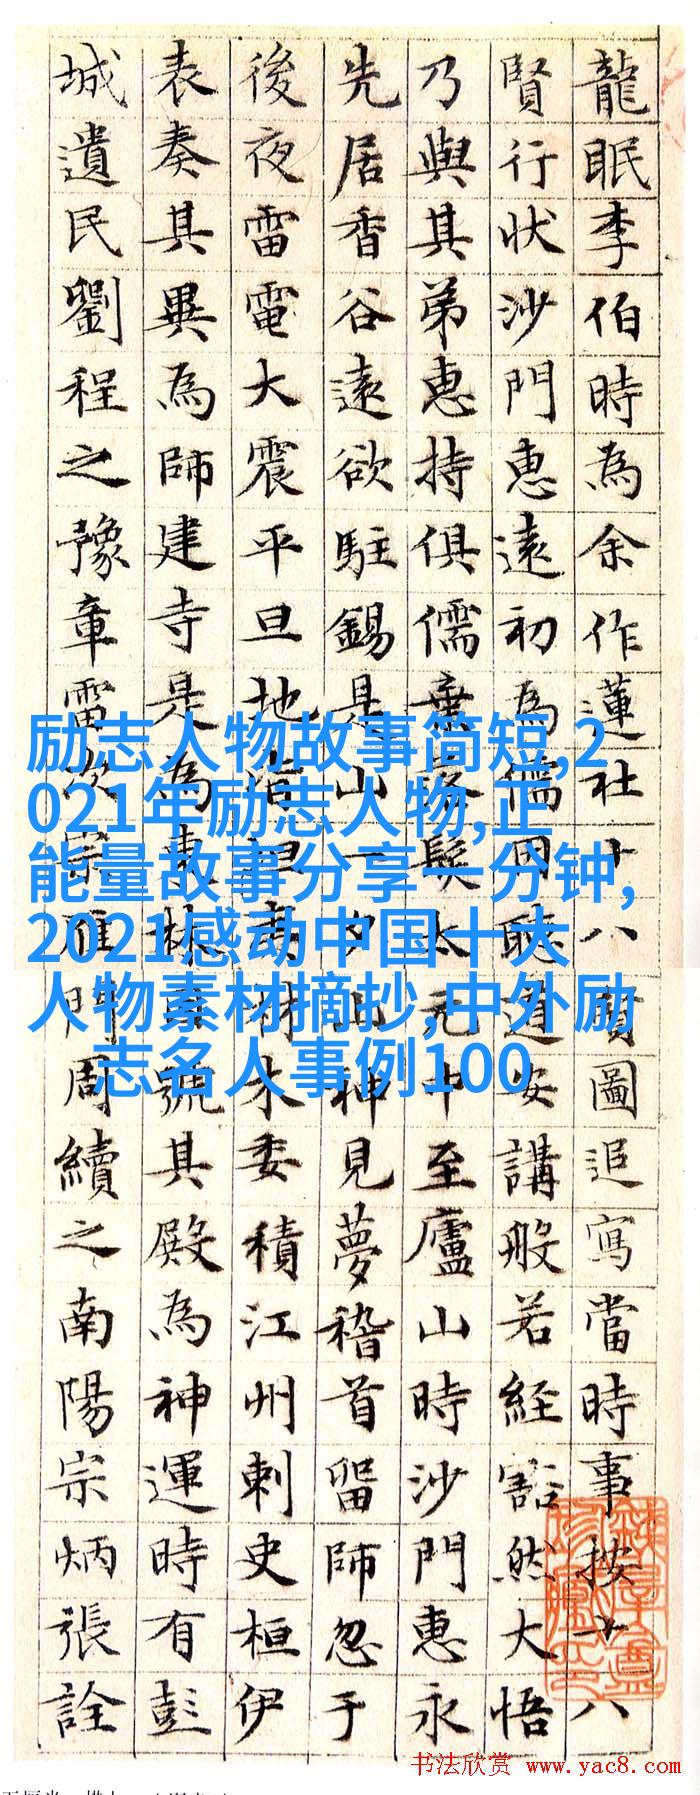 龍眠李伯時為余作蓮社十八賢圖追寫當時事按十八
賢行狀沙門惠遠初為儒因聽道安講般若経豁然大悟
乃與其弟惠持俱儒棄落髮太元中至廬山時沙門惠永
先居香谷遠欲駐錫是山一夕山神見夢稽首留師忽于
後夜雷電大震平旦地皆坦夷材木委積江州刺史桓伊
表奏其異為師建寺是為東林號其殿為神運時有彭
城遺民劉程之豫章雷次宗雁門周續之南陽宗炳張詮
励志人物故事简短,2
021年励志人物,正
能量故事分享一分钟,
2021感动中国十大
人物素材摘抄,中外励
志名人事例100
书法欣赏 www.yac8.com